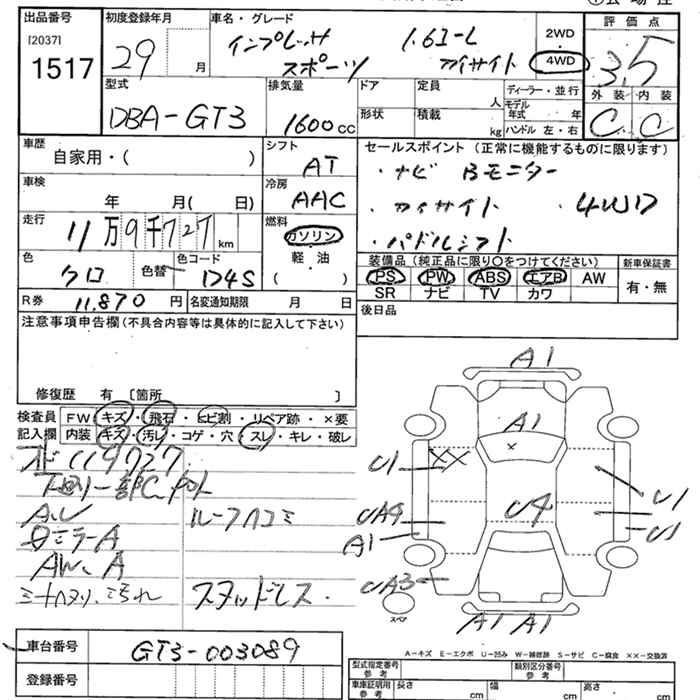 出品番号
[2037]
1517
初度登録年月
29 月
車名・グレード
インプレッサ 1.6i-L
スポーツ アイサイト
2WD
4WD
評価点
3.5
外装 内装
C C
型式
DBA-GT3
排気量
1600 CC
ドア
定員 人
形状
積載 kg
ディーラー・並行
モデル年式 年
ハンドル 左・右
車歴
自家用・( )
シフト
AT
セールスポイント (正常に機能するものに限ります)
・ナビ Bモニター
・アイサイト ・4WD
・パドルシフト
車検
年 月( 日)
冷房
AAC
走行
11万9千727 km
燃料
ガソリン
軽・油
( )
色
クロ
色替
色コード
D4S
装備品(純正品に限り○をつけてください)
PS PW ABS エアB AW
SR ナビ TV カワ
新車保証書
有・無
R券 11.870 円
名変通知期限 月 日
後日品
注意事項申告欄(不具合内容等は具体的に記入して下さい)
修復歴 有 [箇所 ]
検査員
記入欄
FW キズ・飛石・ヒビ割・リペア跡・×要
内装 キズ・汚レ・コゲ・穴・スレ・キレ・破レ
119727
A.U
ルーフ凹コミ
ミラーA
AW、A
スタッドレス.
A1
A1
×
U1
XX
UA4
A1
UA3
U4
U1
U1
A1 A1
スペア
A-キズ E-エクボ U-凹み W-補修跡 S-サビ C-腐食 ××-交換済
車台番号
GT3-003089
登録番号
型式指定番号
参考
類別区分番号
参考
車庫証明用
参考
長さ cm
幅 cm
高さ cm